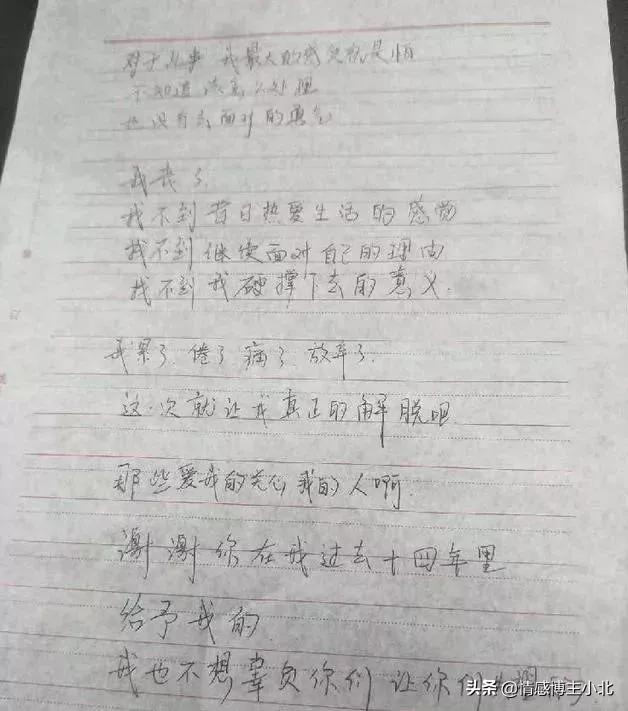 对于此事 我最大的感觉就是怕
不知道该怎么处理
也没有去面对的勇气
我丧了
找不到昔日热爱生活的感觉
找不到继续面对自己的理由
找不到我硬撑下去的意义.
我累了.倦了.痛了.放弃了.
这一次就让我真正的解脱吧
那些爱我的关心我的人啊.
谢谢你在我过去十四年里
给予我的.
我也不想辜负你们 让你们
头条 @情感博主小北